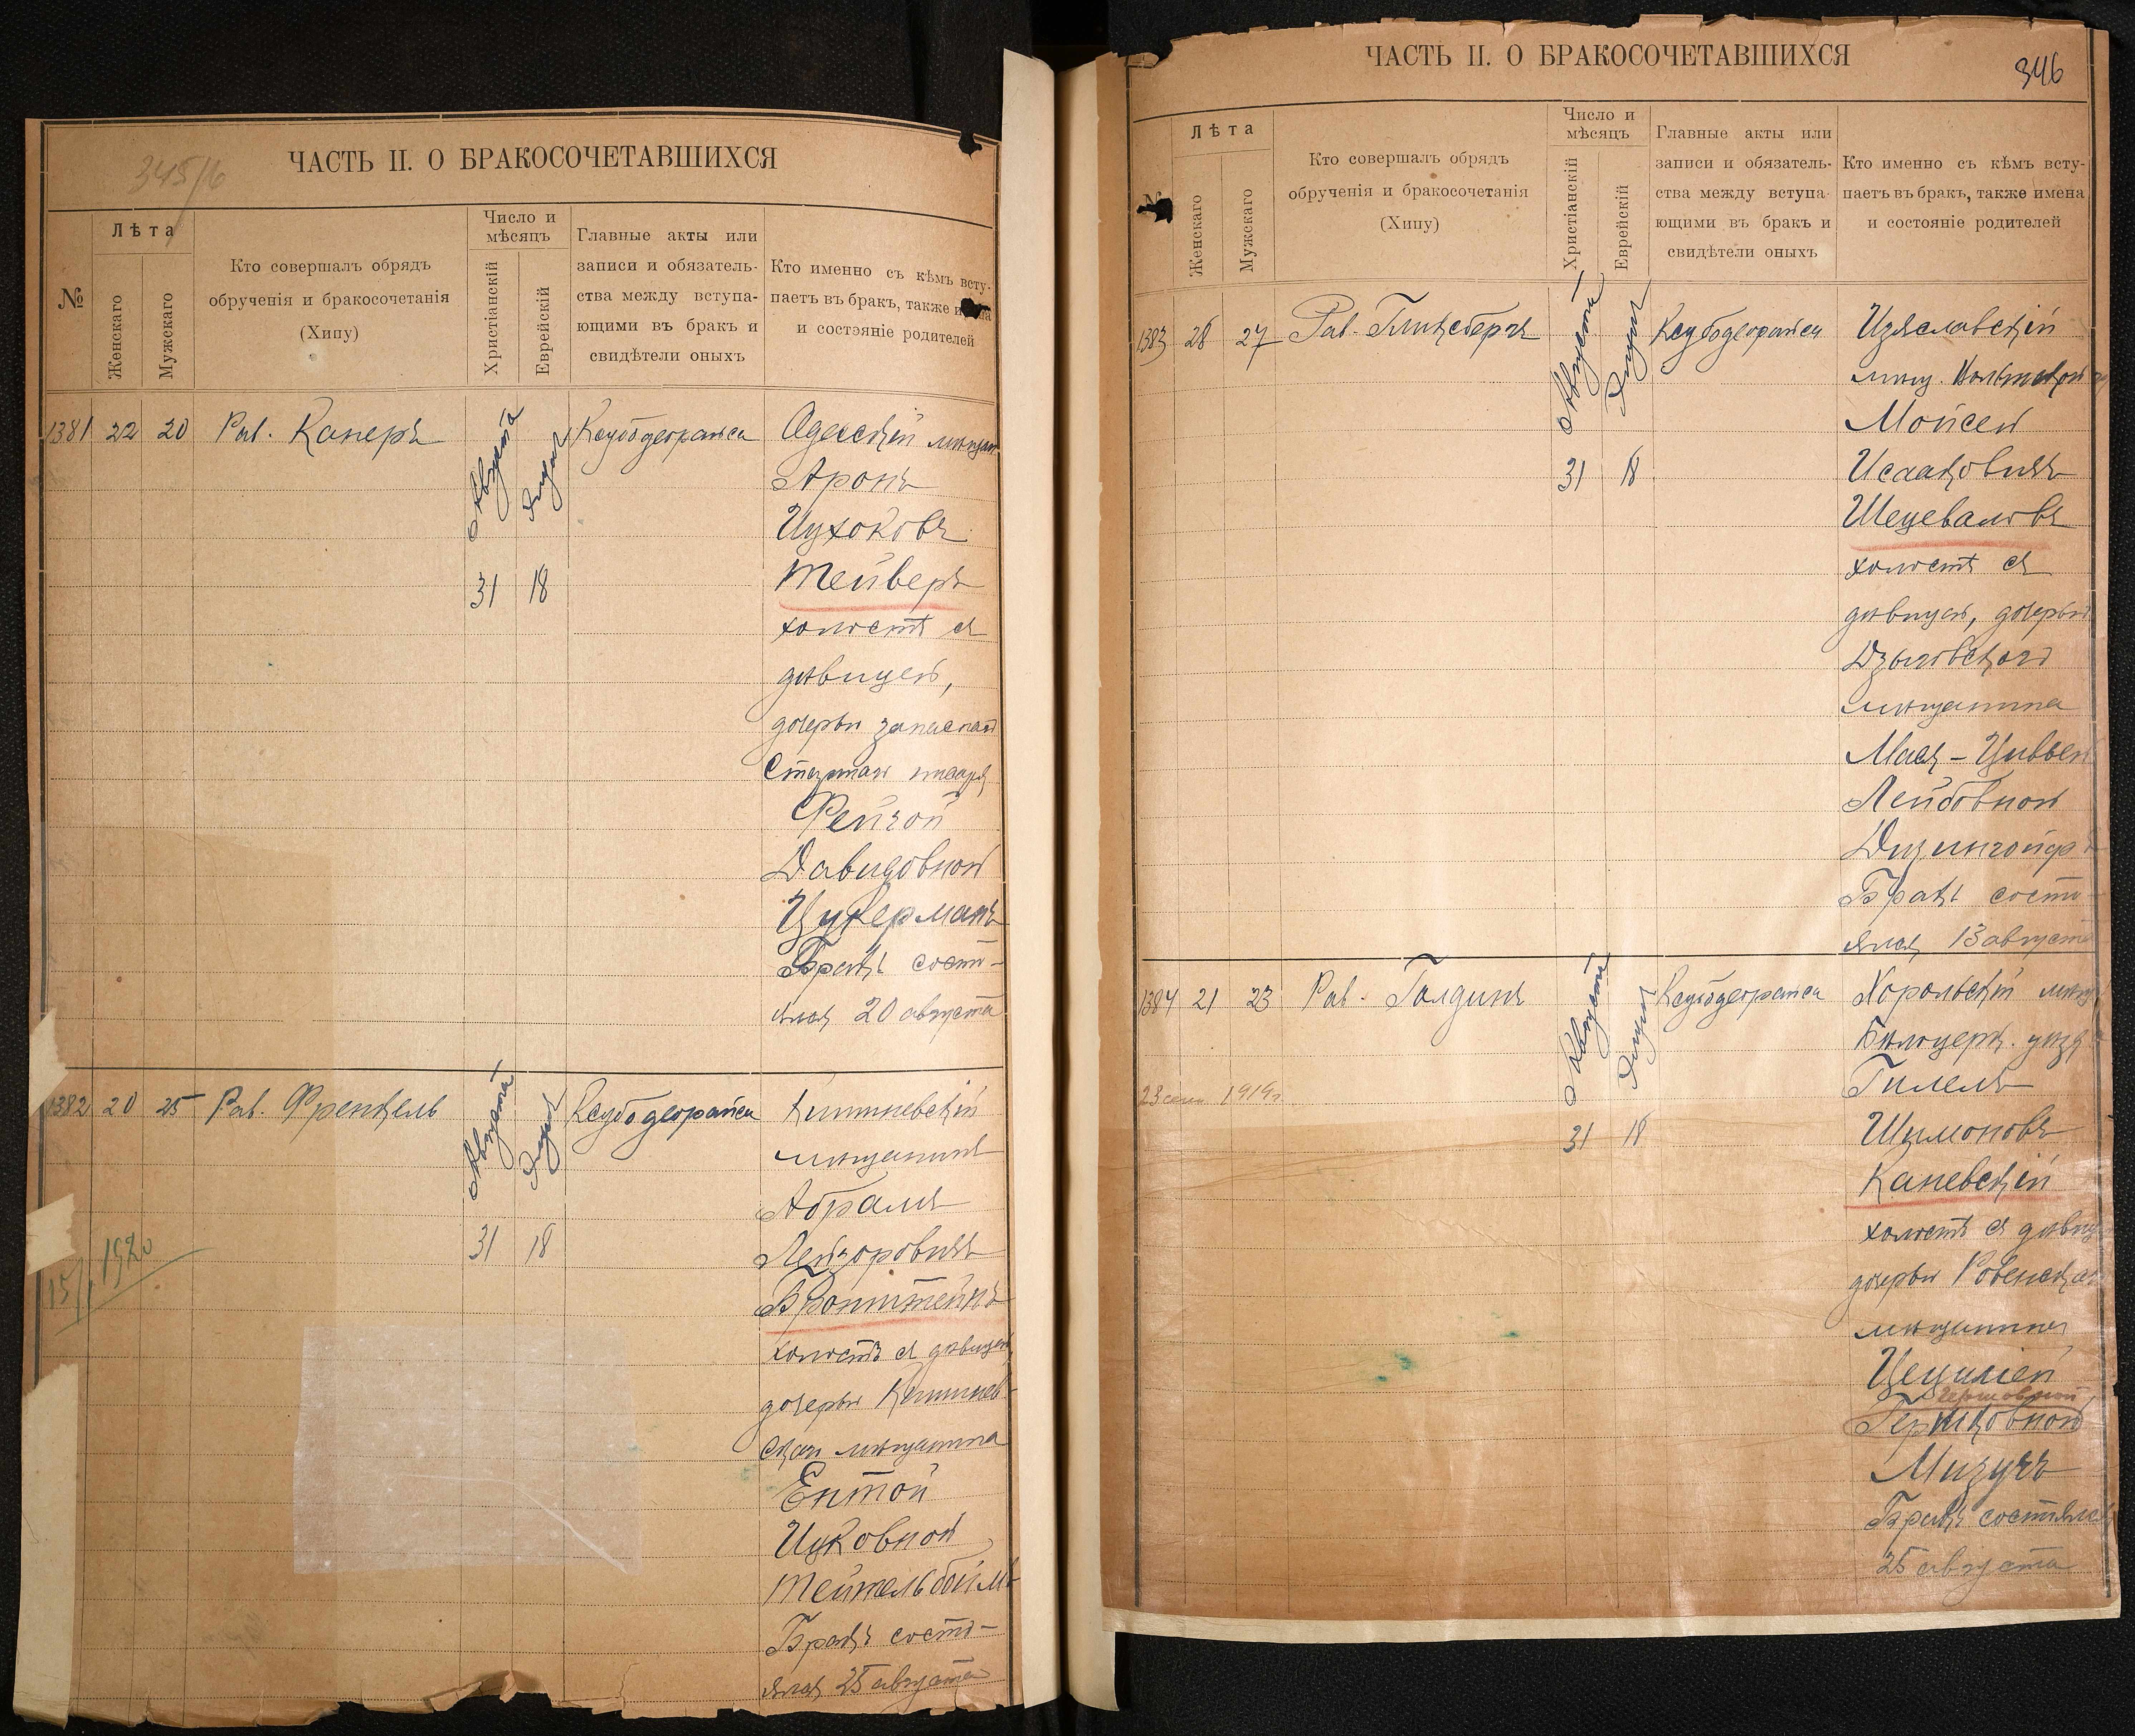 345/6
ЧАСТЬ II. О БРАКОСОЧЕТАВШИХСЯ
№
Лѣта
Женскаго
Мужскаго
Кто совершалъ обрядъ
обрученія и бракосочетанія
(Хипу)
Число и
мѣсяцъ
Христіанскій
Еврейскій
Главные акты или
записи и обязатель-
ства между вступа-
ющими въ бракъ и
свидѣтели оныхъ
Кто именно съ кѣмъ всту-
паетъ въ бракъ, также
и состэяніе родителей
1381 22 20 Рав. Канеръ
Августа
31 18
Одесскій мѣщан.
Аронъ
Ицхоковъ
Тейверъ
холостъ съ
дѣвицею,
дочерью запаснаго
старшаго писаря
Фейгой
Давидовной
Цукерманъ
Бракъ состо-
ялся 20 августа
1382 20 25 Рав. Френкель
Августа
31 18
15/I 1920
Кишиневскій
мѣщанинъ
Абрамъ
Лейзоровичъ
Бронштейнъ
холостъ съ дѣвицею
дочерью Кишинев-
скаго мѣщанина
Ентой
Ицковной
Тейтельбоймъ
Бракъ состо-
ялся 25 августа
ЧАСТЬ II. О БРАКОСОЧЕТАВШИХСЯ
346
Лѣта
Женскаго
Мужскаго
Кто совершалъ обрядъ
обрученія и бракосочетанія
(Хипу)
Число и
мѣсяцъ
Христіанскій
Еврейскій
Главные акты или
записи и обязатель-
ства между вступа-
ющими въ бракъ и
свидѣтели оныхъ
Кто именно съ кѣмъ всту-
паетъ въ бракъ, также имена
и состояніе родителей
1383 28 27 Рав. Гинсбергъ
Августа
31 18
Изяславскій
мѣщ.
Мойсей
Исааковичъ
холостъ съ
дѣвицею, дочерью
мѣщанина
Мася-Циввей
Лейбовной
Бракъ состо-
ялся 13 августа
1384 21 23 Рав. Голдинъ
Августа
31 18
1919г.
Хорольскій мѣщ
Гилель
Шимоновъ
Каневскій
холостъ съ дѣвиц
дочерью Ровенскаго
мѣщанина
Цецилией
Гершовной
Мизучъ
Бракъ состоялся
25 августа